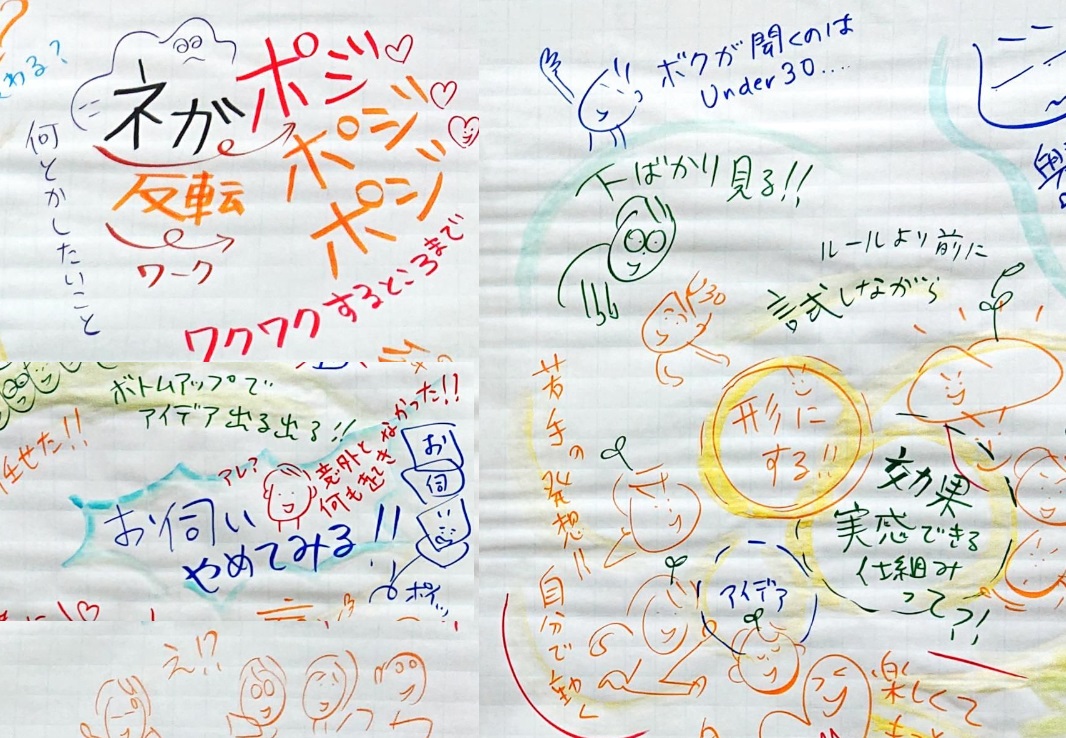 わる?
ネガ
ポジ
ポジ
ポジ
反転
ワーク
何とかしたいこと
ワクワクするところまで
ボトムアップで
アイデア出る出る!!
任せた!!
アレ?
意外と
何も起きなかった!!
お伺い
やめてみる!!
お
伺
ポイッ
え!?
ボクが聞くのは
Under30....
下ばかり見る!!
ルールより前に
試しながら
30
形に
する!!
若手の発想!!
自分で動く
効果
実感できる
仕組み
って?!
アイデア
楽しくて